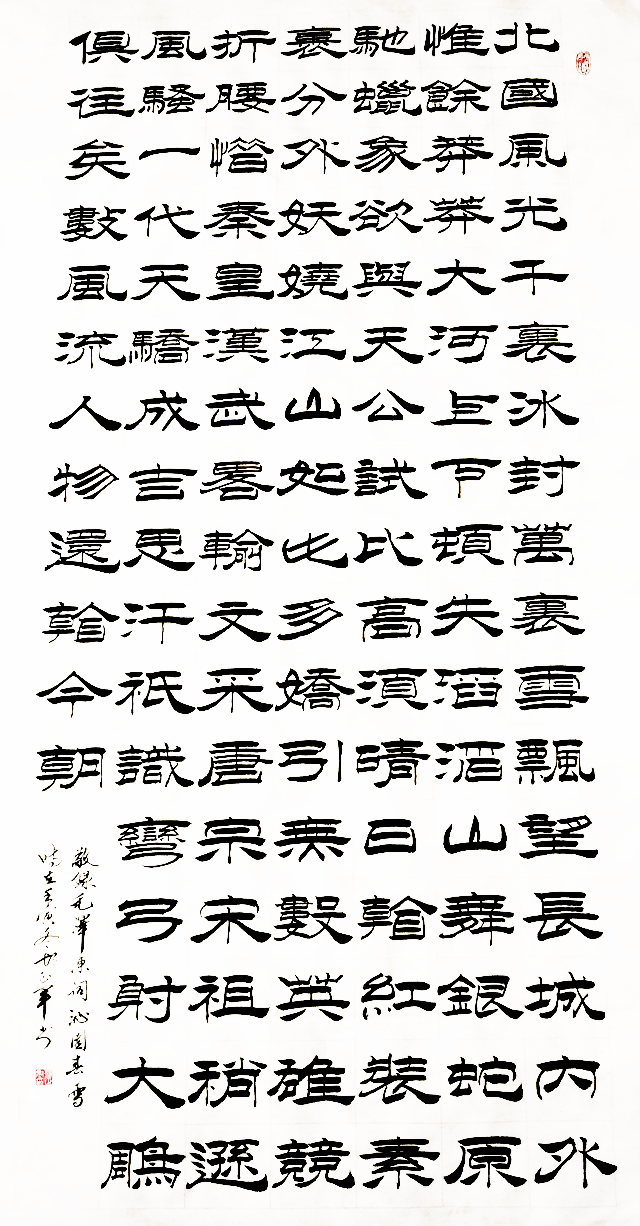 北國風光千裏冰封萬裏雪飄望長城內外
惟餘莽莽大河上下頓失滔滔山舞銀蛇原
馳蠟象欲與天公試比高須晴日看紅裝素
裹分外妖嬈江山如此多嬌引無數英雄競
折腰惜秦皇漢武畧輸文采唐宗宋祖稍遜
風騷一代天驕成吉思汗祇識彎弓射大鵰
俱往矣數風流人物還看今朝
敬錄毛澤東詞沁園春雪
時在寅冬書